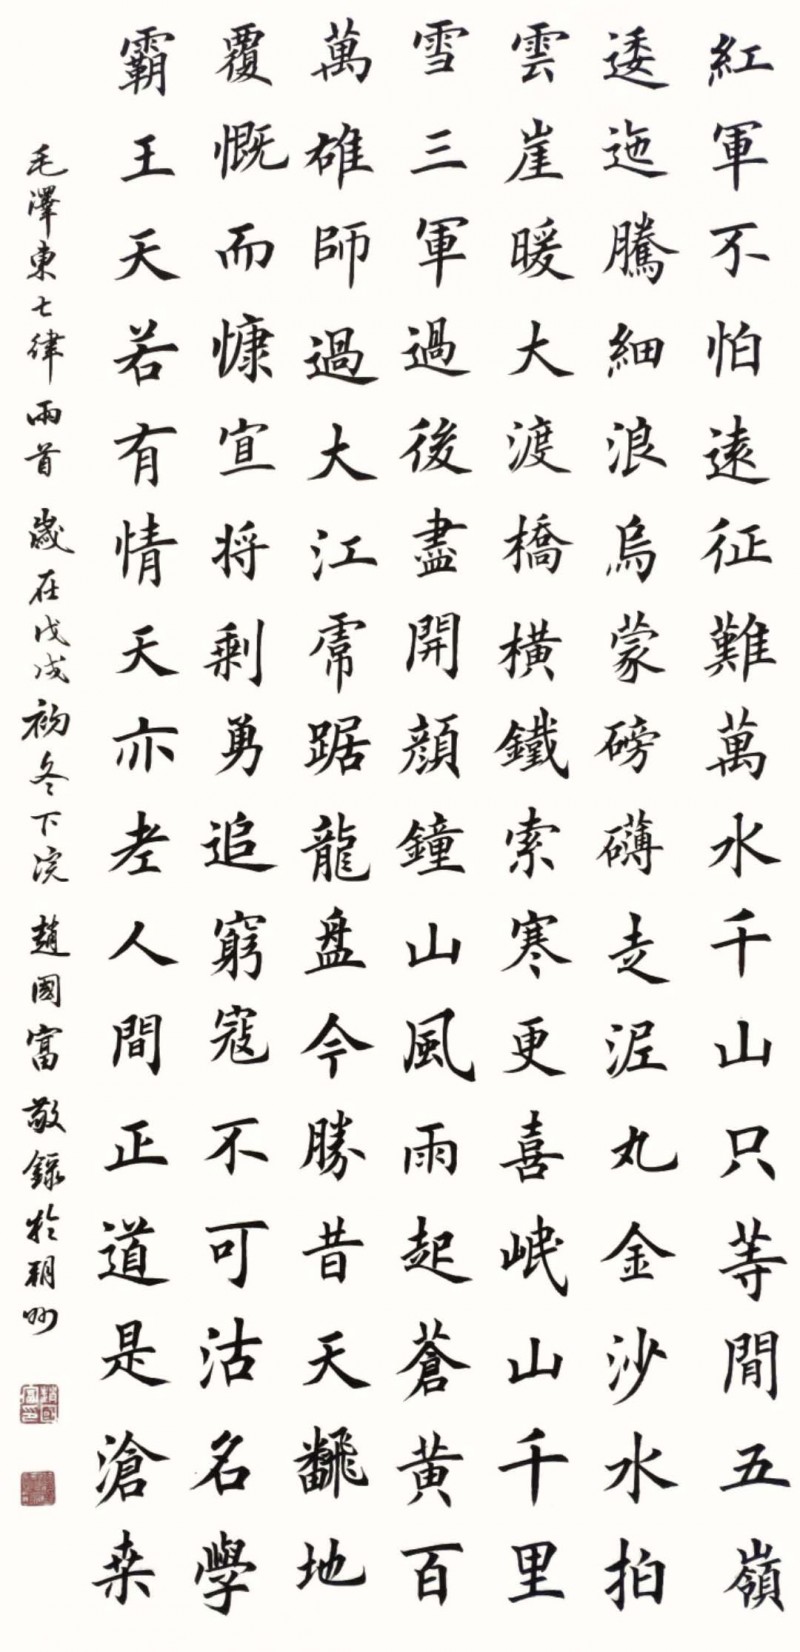 紅軍不怕遠征難萬水千山只等閒五嶺
逶迤騰細浪烏蒙磅礴走泥丸金沙水拍
雲崖暖大渡橋橫鐵索寒更喜岷山千里
雪三軍過後盡開顏鐘山風雨起蒼黃百
萬雄師過大江虎踞龍盤今勝昔天翻地
覆慨而慷宜將剩勇追窮寇不可沽名學
霸王天若有情天亦老人間正道是滄桑
毛澤東七律兩首歲在戊戌初冬下浣趙國富敬錄於朔州